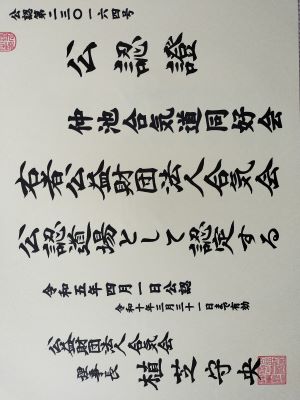 公認第二三〇一六四号
公認證
仲池合気道同好会
右者公益財団法人合気会
公認道場として認定する
令和五年四月一日公認
令和十年三月三十一日まで有効
公益財団法人合気会
理事長 植芝守央